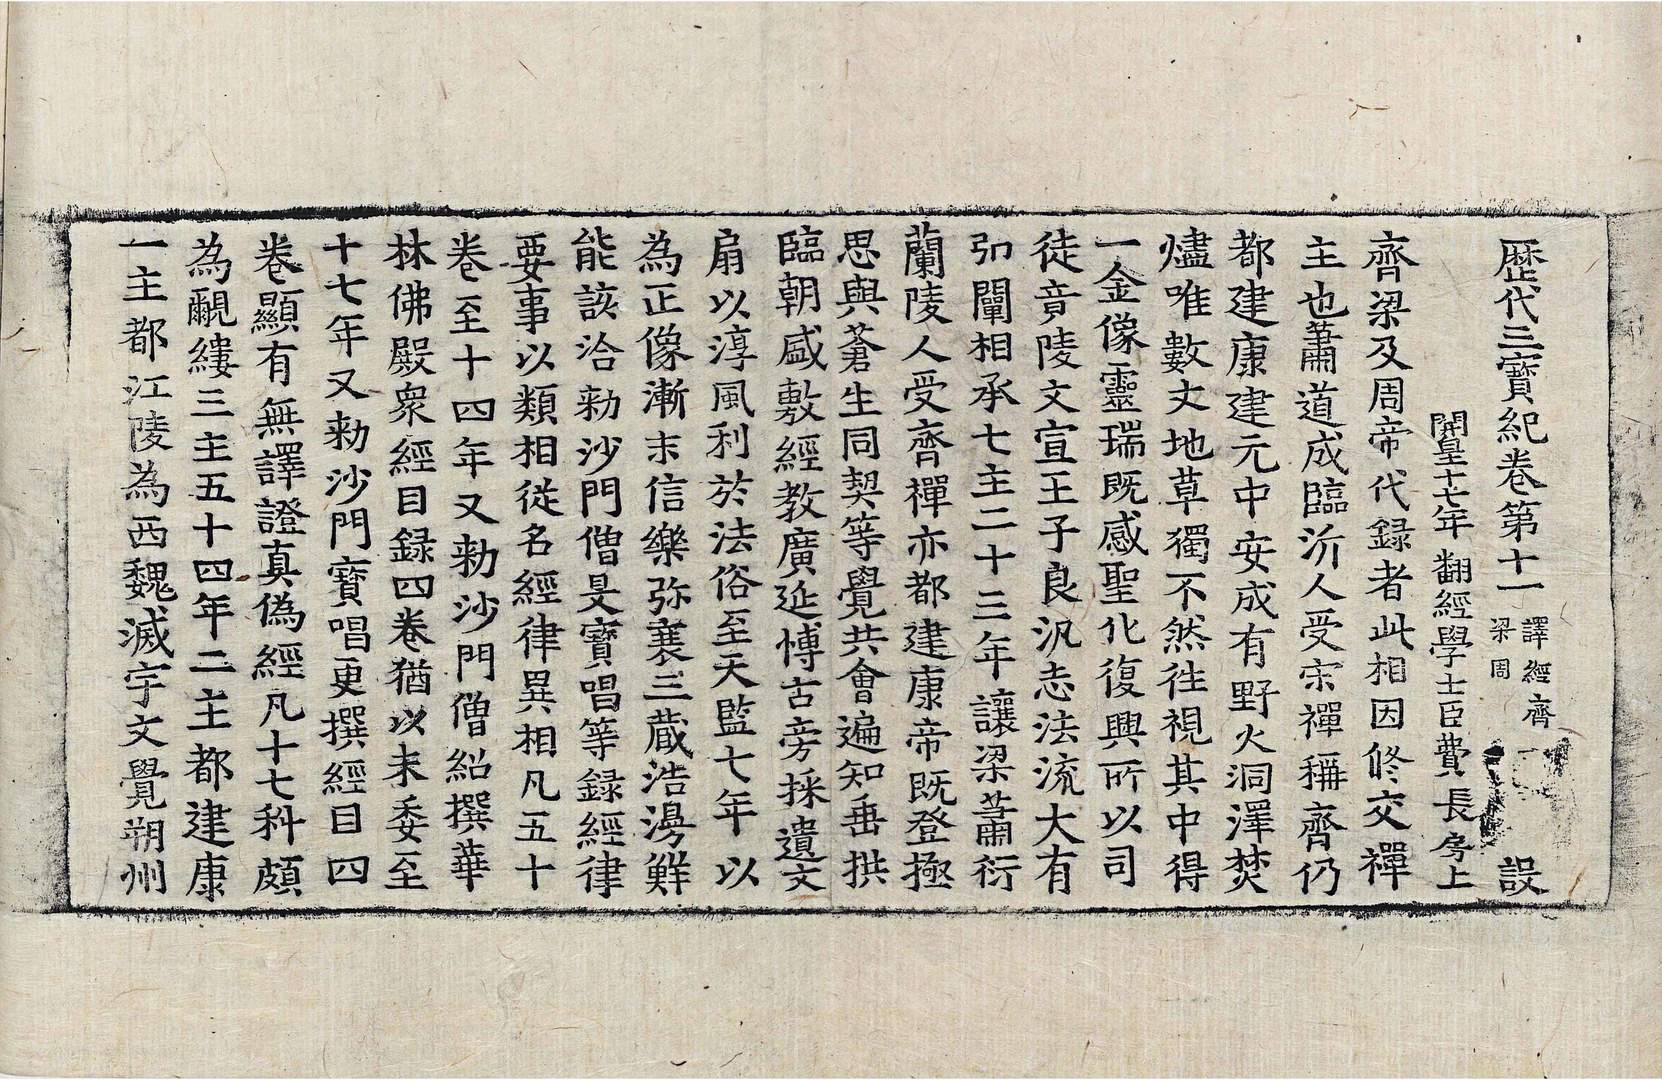 歷代三寶紀卷第十一 譯經齊梁周 設
開皇十七年翻經學士臣費長房上
齊梁及周帝代録者此相因修交禪
主也蕭道成臨沂人受宋禪稱齊仍
都建康建元中安成有野火洞澤焚
燼唯數丈地草獨不然往視其中得
一金像靈瑞既感聖化復興所以司
徒竟陵文宣王子良汎志法流大有
弘闡相承七主二十三年讓梁蕭衍
蘭陵人受齊禪亦都建康帝既登極
思與蒼生同契等覺共會遍知垂拱
臨朝盛敷經教廣延博古旁採遺文
扇以淳風利於法俗至天監七年以
為正像漸末信樂弥衰三藏浩漫鮮
能該洽勑沙門僧旻寶唱等録經律
要事以類相從名經律異相凡五十
卷至十四年又勑沙門僧紹撰華
林佛殿衆經目録四卷猶以未委至
十七年又勑沙門寶唱更撰經目四
卷顯有無譯證真偽經凡十七科頗
為覼縷三主五十四年二主都建康
一主都江陵為西魏滅宇文覺朔州